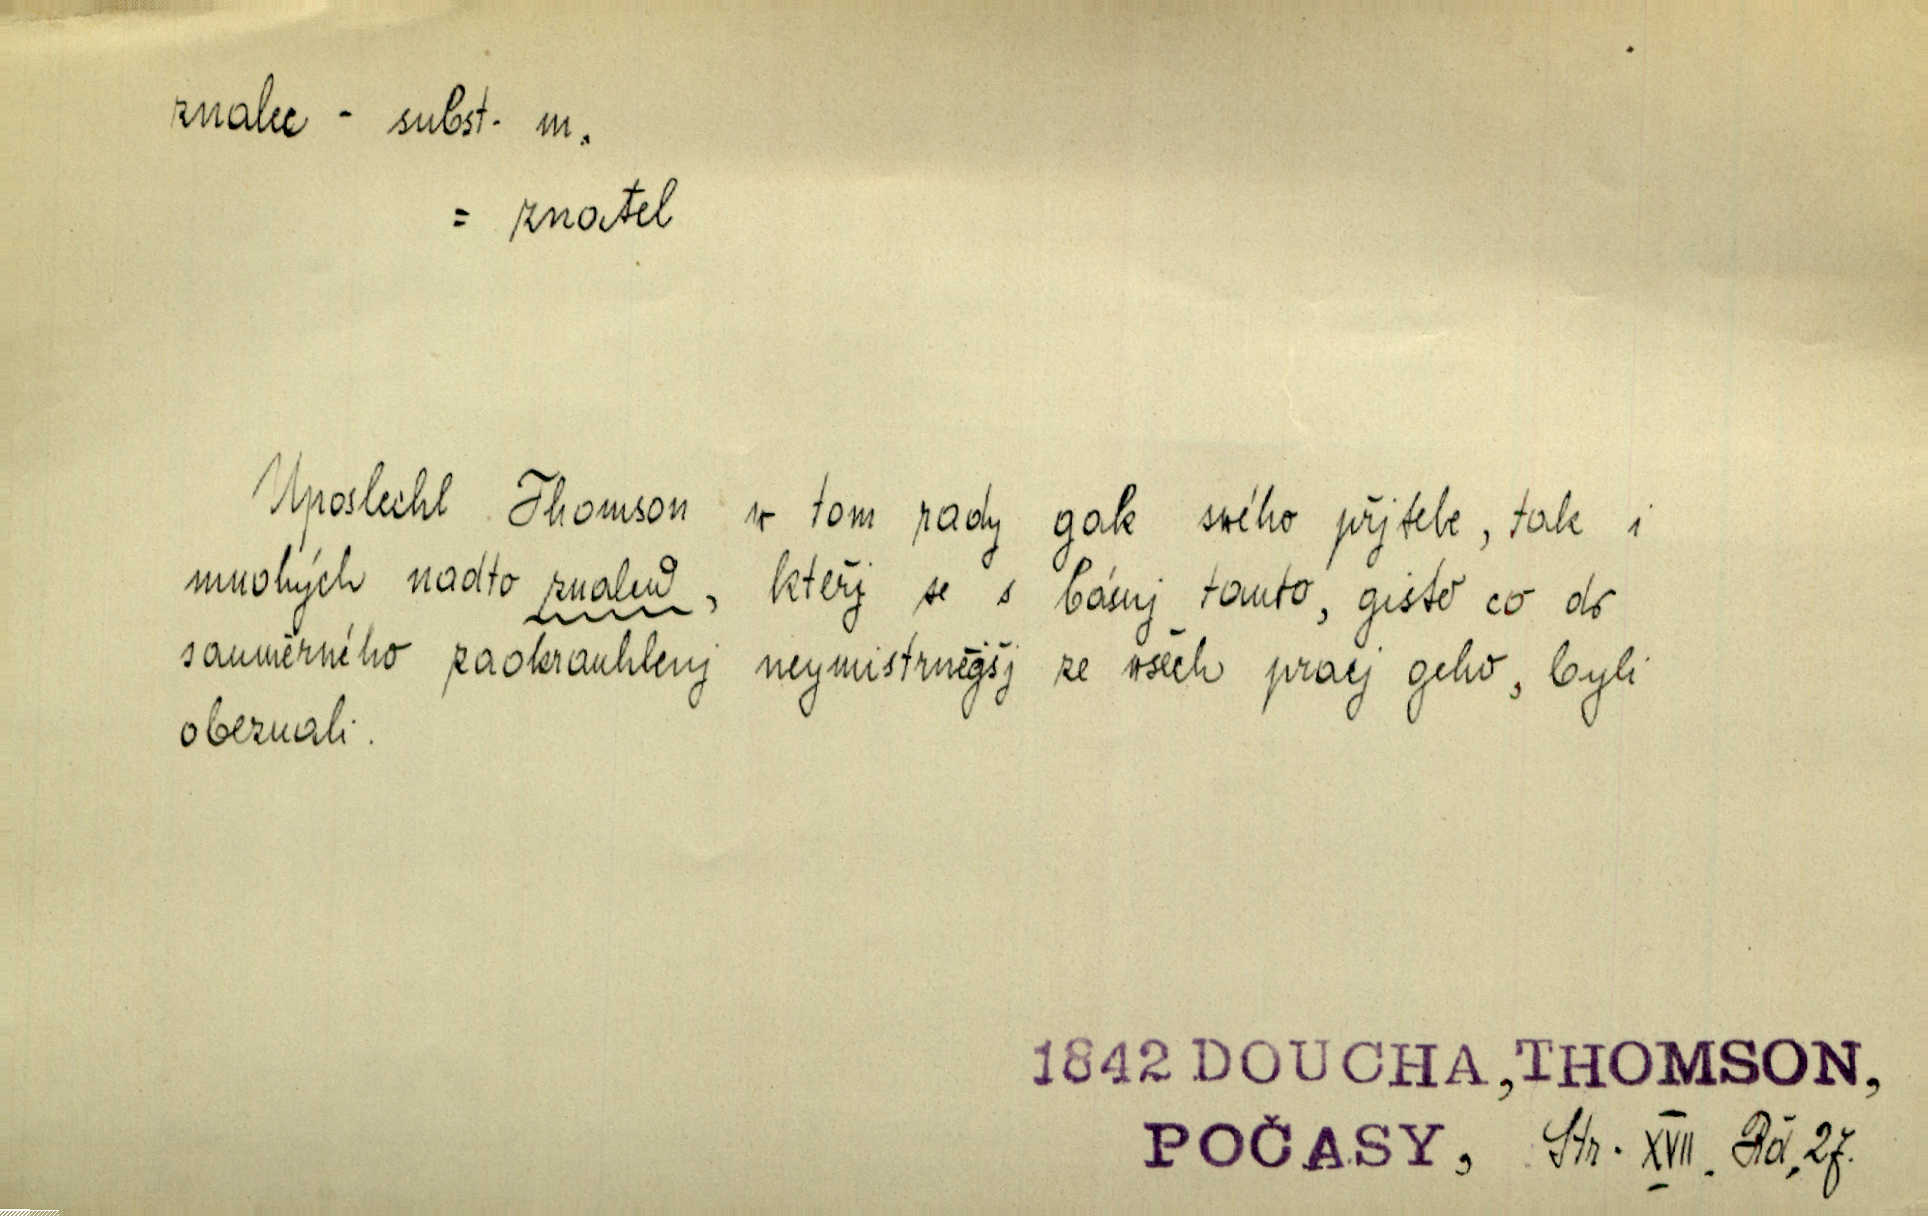 znalec - subst. m.
= znatel
Uposlechl Thomson w tom rady gak swého přjtele, tak i
mnohých nadto znalců, kteřj se s básnj tauto, gisto co do
sauměrného zaokrauhlenj neymistrněgšj ze wšech pracj geho, byli
obeznali.
1842 DOUCHA, THOMSON,
POČASY, Str. XVII. Řá, 27.